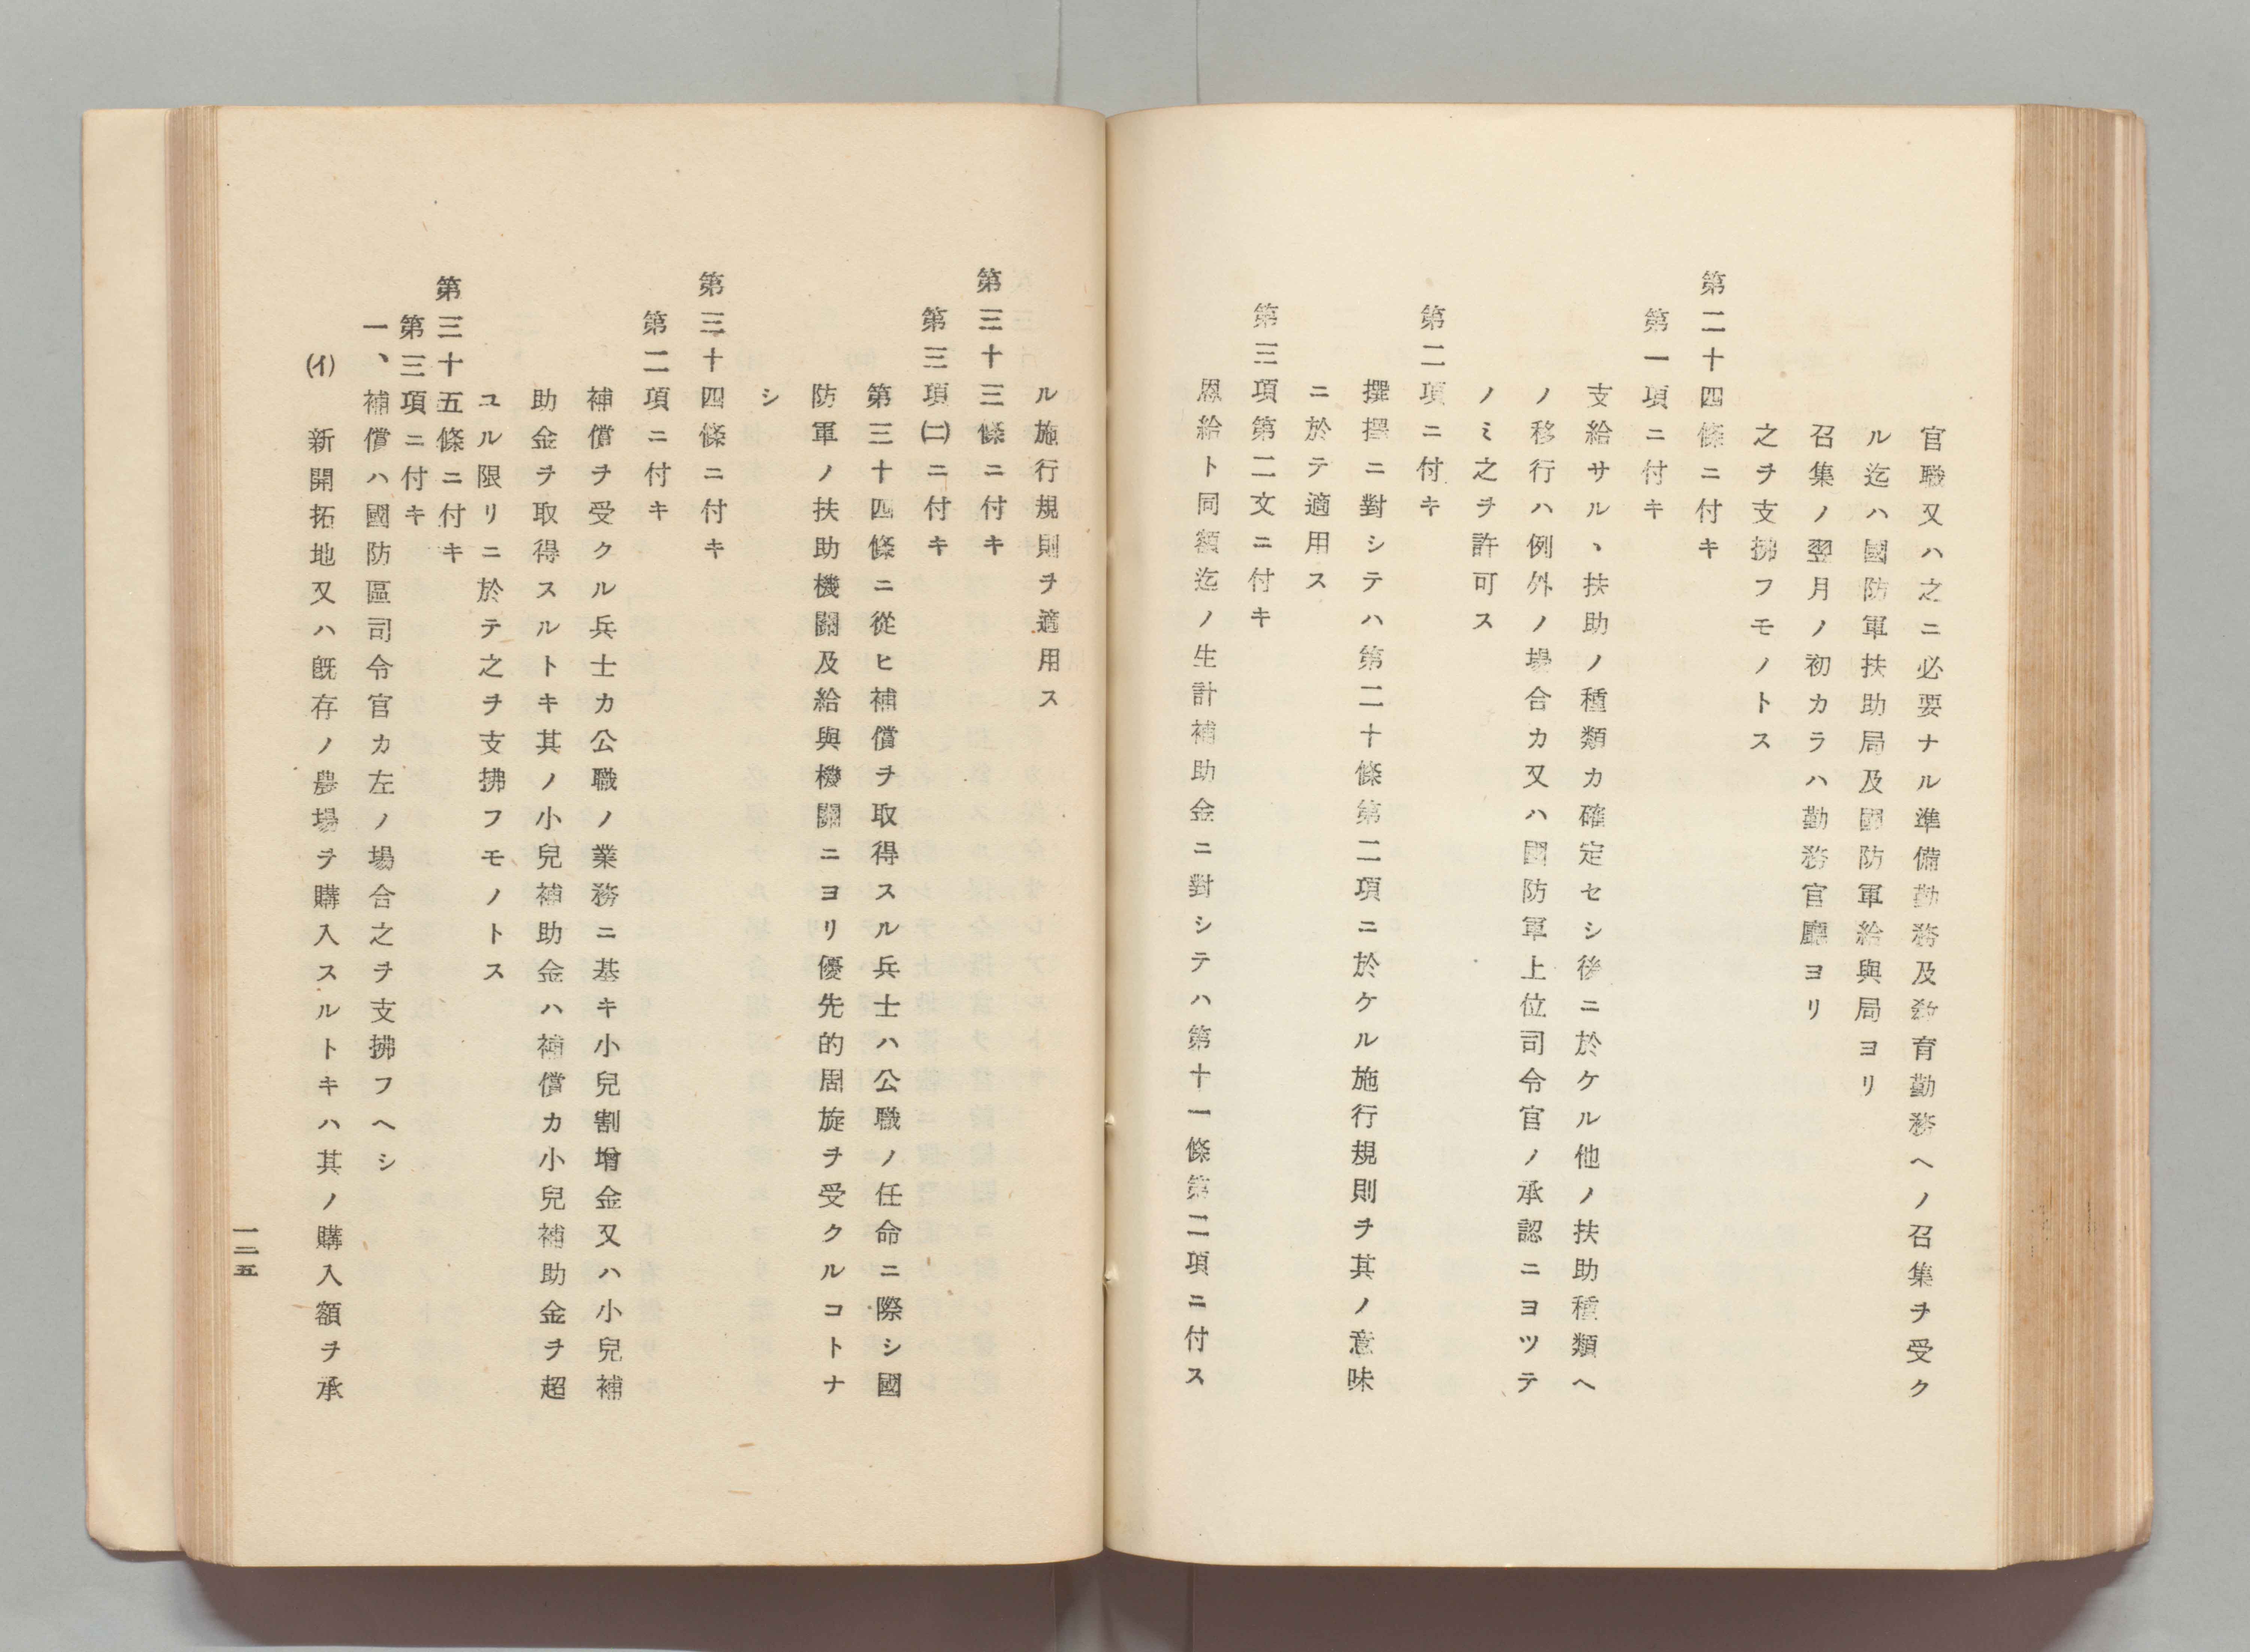 官職又ハ之ニ必要ナル準備勤務及敎育勤務ヘノ召集ヲ受ク
ル迄ハ國防軍扶助局及國防軍給與局ヨリ
召集ノ翌月ノ初カラハ勤務官廳ヨリ
之ヲ支拂フモノトス
第二十四條ニ付キ
第一項ニ付キ
支給サル、扶助ノ種類カ確定セシ後ニ於ケル他ノ扶助種類ヘ
ノ移行ハ例外ノ場合カ又ハ國防軍上位司令官ノ承認ニヨツテ
ノミ之ヲ許可ス
第二項ニ付キ
撰擇ニ對シテハ第二十條第二項ニ於ケル施行規則ヲ其ノ意味
ニ於テ適用ス
第三項第二文ニ付キ
恩給ト同額迄ノ生計補助金ニ對シテハ第十一條第二項ニ付ス
ル施行規則ヲ適用ス
第三十三條ニ付キ
第三項㈡ニ付キ
第三十四條ニ從ヒ補償ヲ取得スル兵士ハ公職ノ任命ニ際シ國
防軍ノ扶助機關及給與機關ニヨリ優先的周旋ヲ受クルコトナ
シ
第三十四條ニ付キ
第二項ニ付キ
補償ヲ受クル兵士カ公職ノ業務ニ基キ小兒割增金又ハ小兒補
助金ヲ取得スルトキ其ノ小兒補助金ハ補償カ小兒補助金ヲ超
ユル限リニ於テ之ヲ支拂フモノトス
第三十五條ニ付キ
第三項ニ付キ
一、補償ハ國防區司令官カ左ノ場合之ヲ支拂フヘシ
(イ)　新開拓地又ハ既存ノ農場ヲ購入スルトキハ其ノ購入額ヲ承
一二五